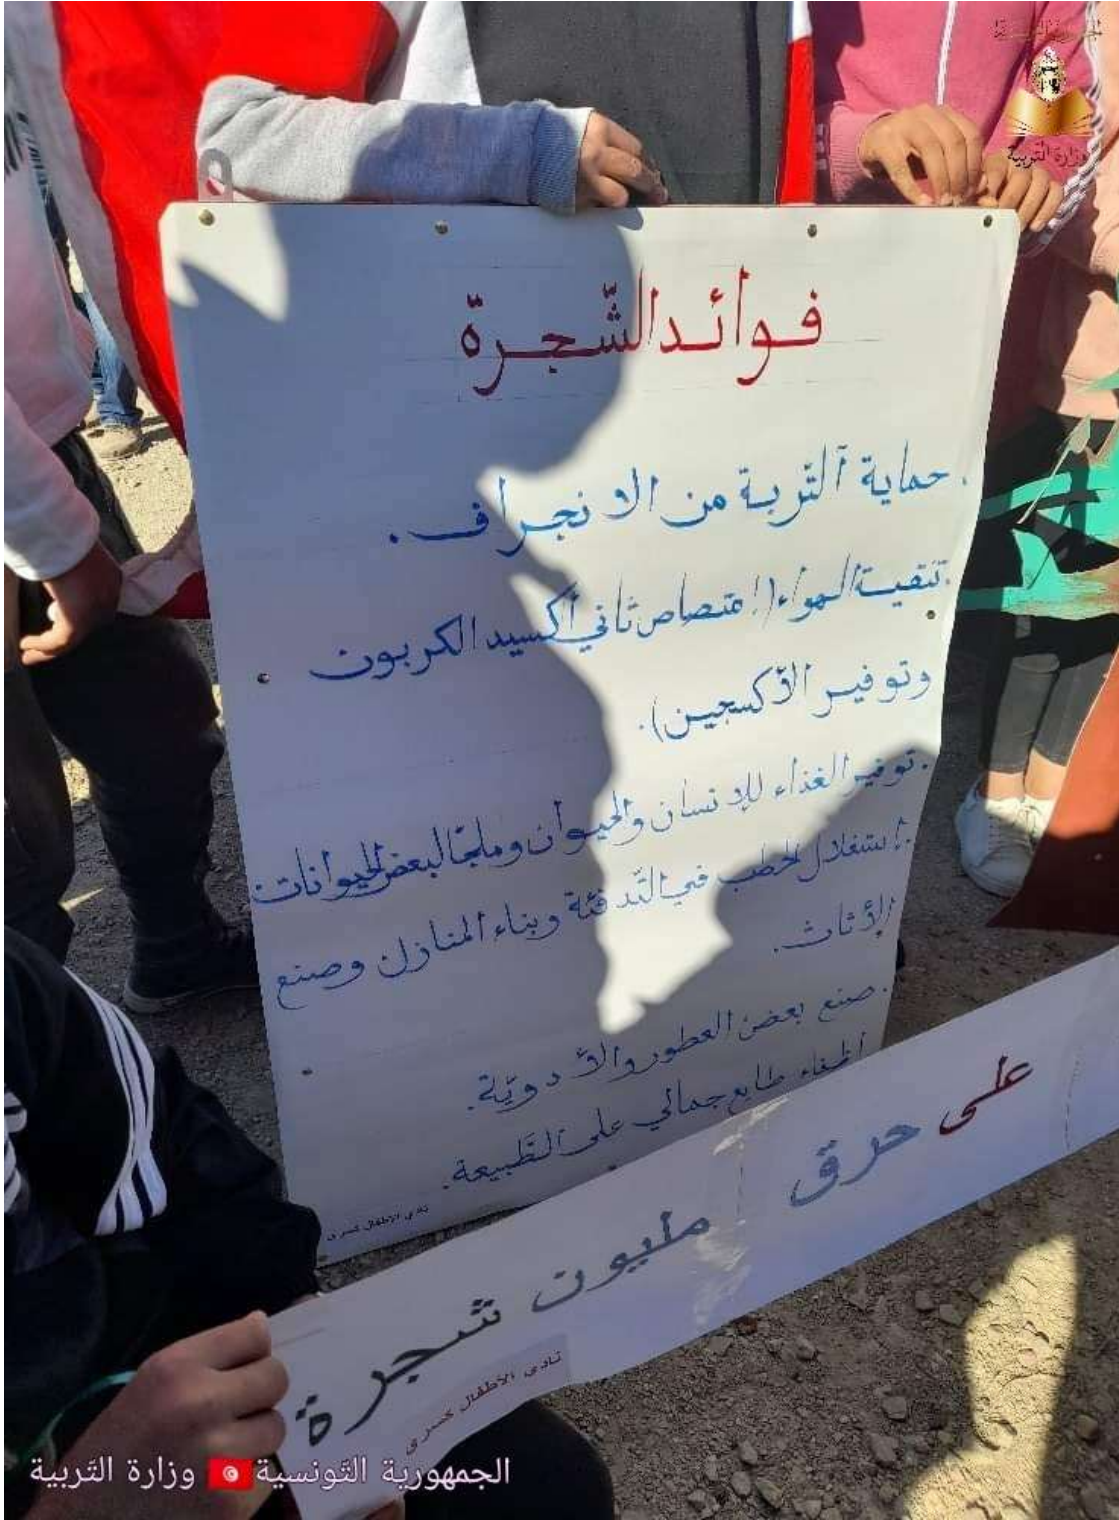 الجمهورية التونسية
وزارة التربية
فوائد الشّجرّة
. حماية ٱلتّربة من الانجراف .
. تنقية الهواء (امتصاص ثاني أكسيد الكربون
وتوفير الأكسجين).
. توفير الغذاء للإنسان والحيوان وملجأ لبعض الحيوانات.
. استغلال الحطب في التّدفئة وبناء المنازل وصنع
الأثاث.
. صنع بعض العطور والأدويّة.
. اظفاء طابع جمالي على الطّبيعة.
نادي الأطفال كسرى
على حرق مليون شجرة
نادي الأطفال كسرى
الجمهورية التّونسية وزارة التّربية